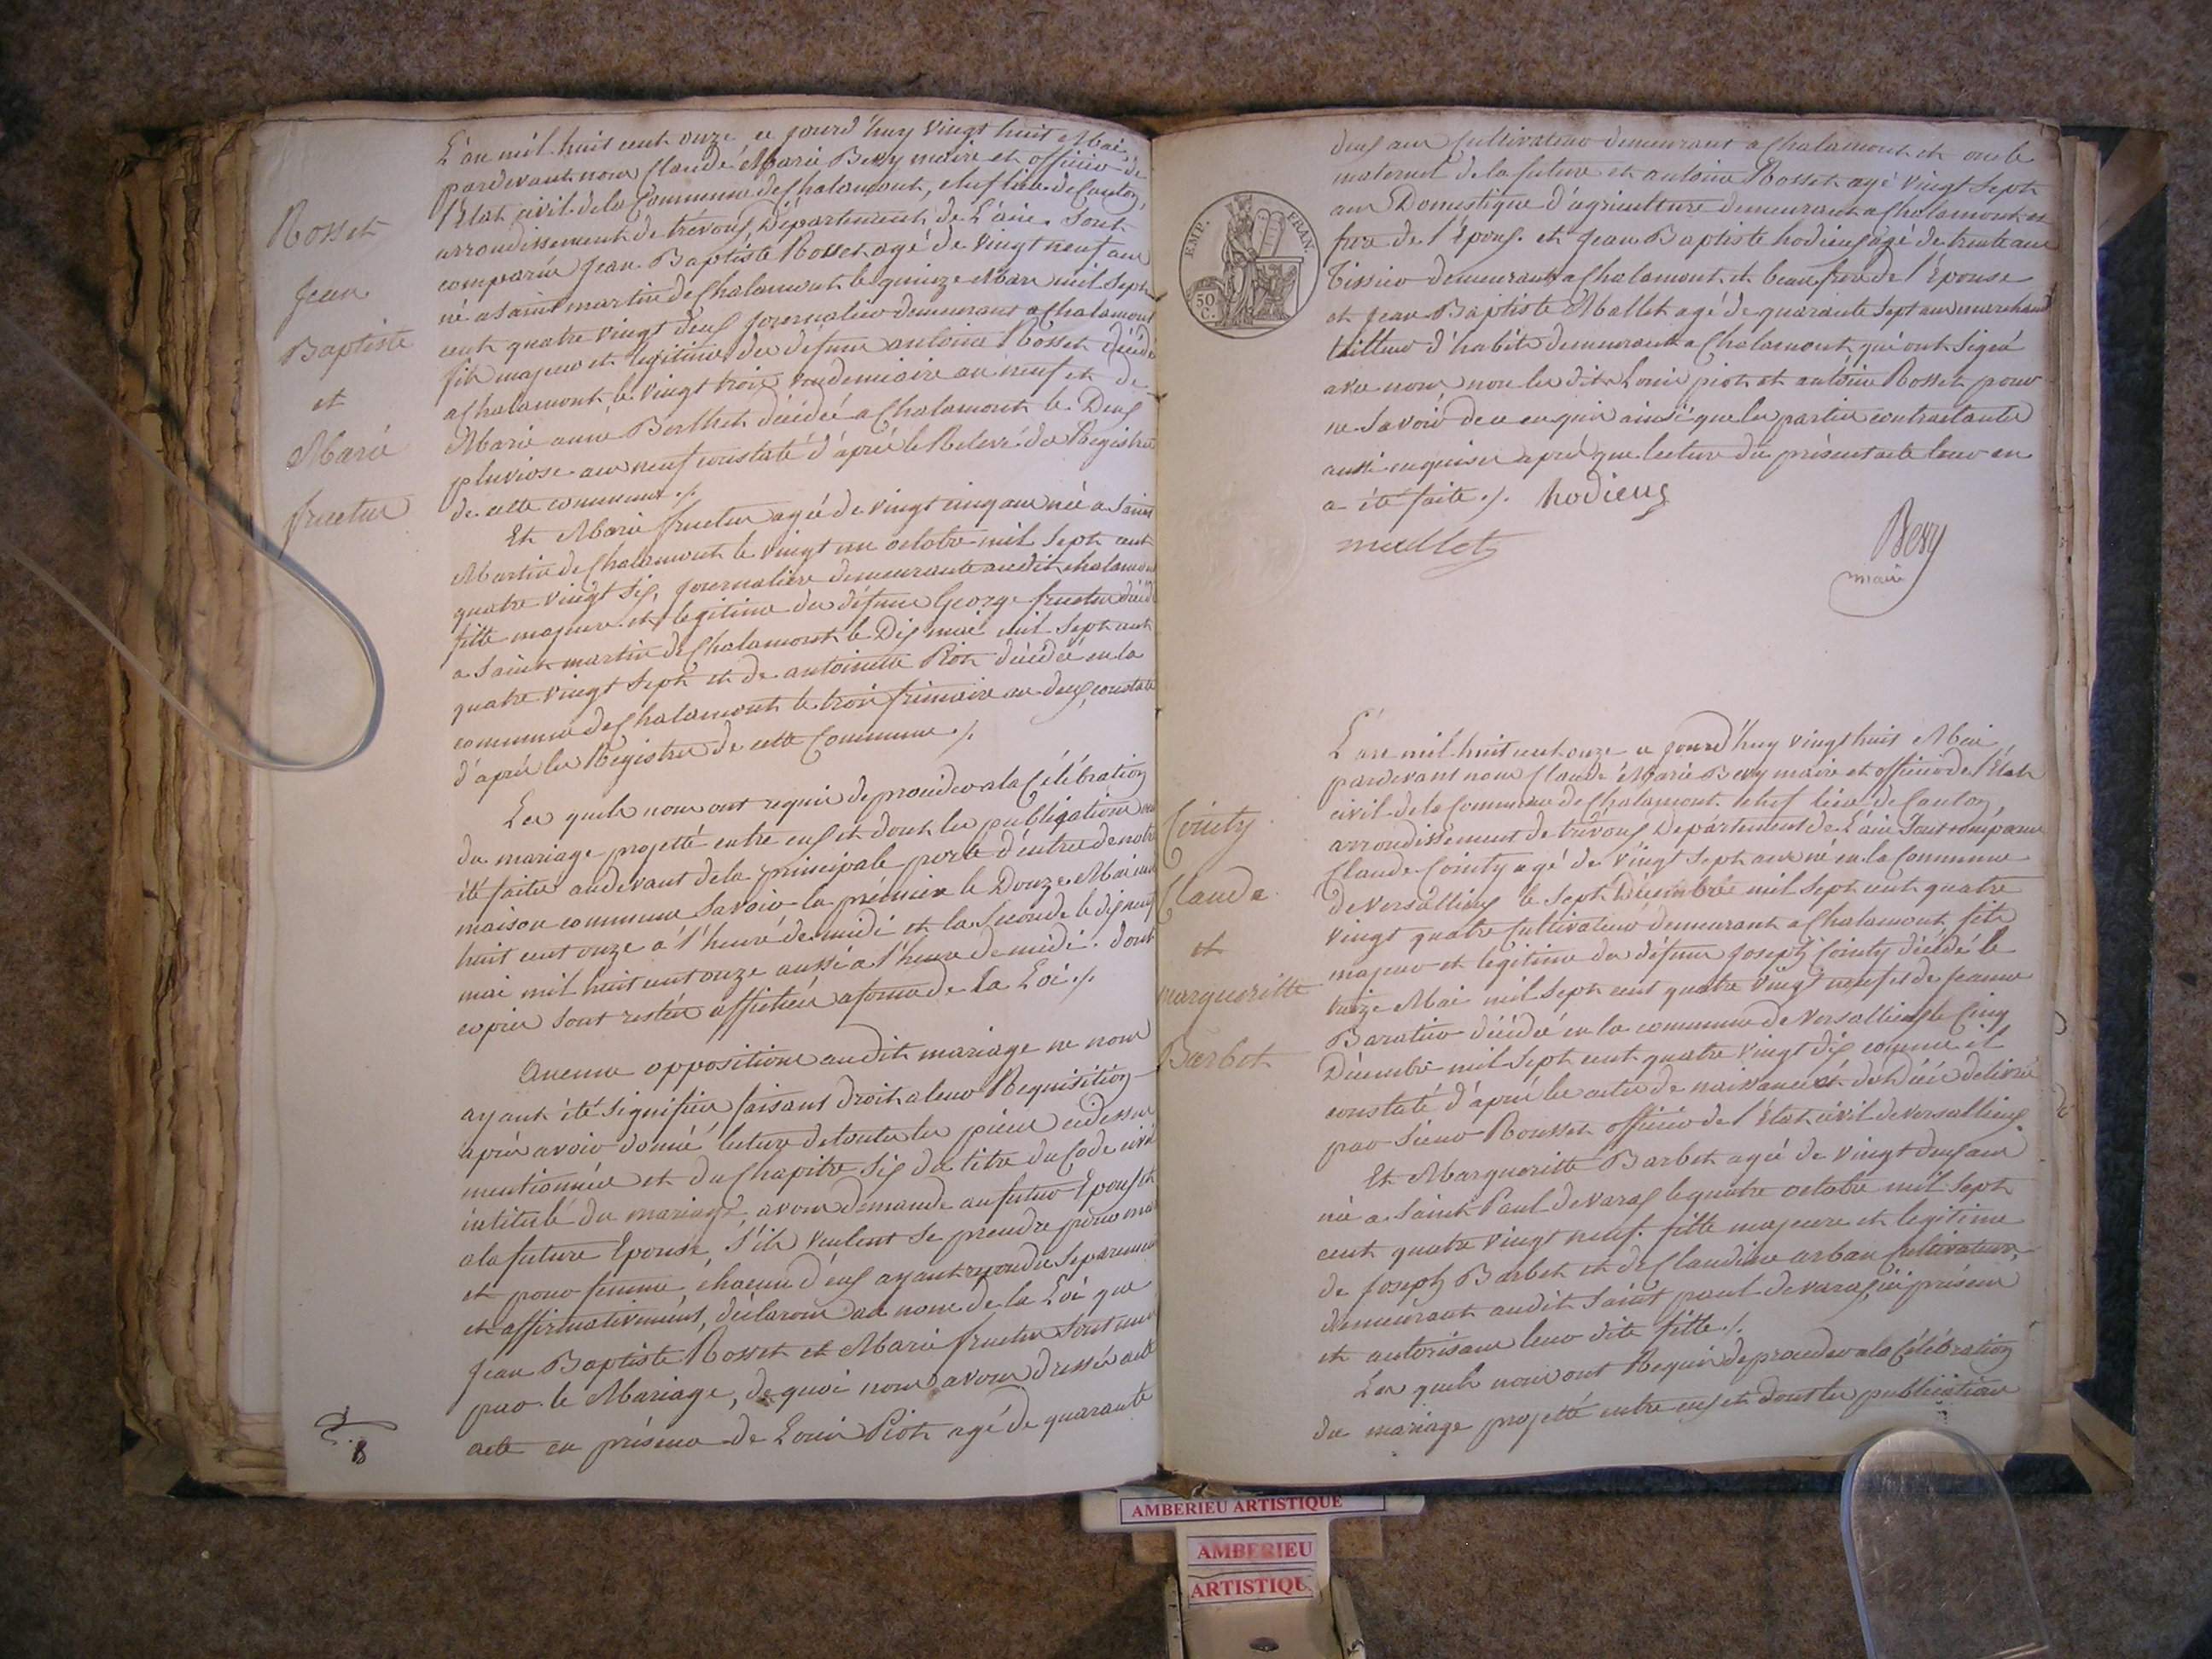 Rosset
Jean
Baptiste
et
Marie
fructus
L'an mil huit cent onze ce jourd'huy vingt huit Mai,
pardevant nous Claude Marie Bevy maire et officier de
l'Etat civil de la Commune de Chalamont, chef lieu de Canton,
arrondissement de trévoux, Département de L'ain. Sont
comparus Jean Baptiste Rosset agé de vingt neuf ans
né a Saint martin de Chalamont le quinze Mars mil sept
cent quatre vingt deux journalier demeurant a Chalamont
fils majeur et legitime des défunts antoine Rosset décédé
a Chalamont le vingt trois vendemiaire an neuf et de
Marie anne Berthet décédée a Chalamont le Deux
pluviose an neuf constaté d'après le Relevé des Registres
de cette commune ./.
Et Marie fructus agée de vingt cinq ans née a Saint
Martin de Chalamont le vingt un octobre mil sept cent
quatre vingt six, journalière demeurante audit chalamont
fille majeure et legitime des défunts George fructus décédé
a Saint martin de Chalamont le Dix mai mil sept cent
quatre vingt sept et de antoinette Piot décédée en la
commune de Chalamont le trois frimaire an deux, constaté
d'après les Registres de cette Commune ./.
Les quels nous ont requis de proceder a la Célébration
du mariage projetté entre eux et dont les publications ont
été faites audevant de la principale porte d'entrée de notre
maison commune Savoir la première le Douze Mai mil
huit cent onze à l'heure de midi et la seconde le dix neuf
mai mil huit cent onze aussi a l'heure de midi. dont
copies sont restées affichées a forme de La Loi ./.
Aucune opposition audit mariage ne nous
ayant été signifiée faisant droit a leur Requisition
après avoir donné lecture de toutes les pièces cidessus
mentionnées et du Chapitre six du titre du Code civil
intitulé du mariage, avons demandé au futur Epoux et
a la future Epouse, s'ils veulent se prendre pour mari
et pour femme, chacun d'eux ayant repondu separement
et affirmativement, déclarons au nom de la Loi que
Jean Baptiste Rosset et Marie fructus sont unis
par le Mariage, de quoi nous avons dressés acte
acte en présence de Louis Piot agé de quarante
8
EMP. FRAN.
50
C.
deux ans Cultivateur demeurant a Chalamont et oncle
maternel de la future et antoine Rosset agé vingt sept
ans Domestique d'agriculture demeurant a Chalamont et
frère de l'Epoux. et Jean Baptiste hodieux agé de trente ans
Tissier demeurant a Chalamont et beau frère de l'Epouse
et Jean Baptiste Mallet agé de quarante sept ans marchand
tailleur d'habits demeurant a Chalamont qui ont signé
avec nous non les dits Louis piot et antoine Rosset pour
ne savoir de ce enquis ainsi que les parties contractantes
aussi enquises après que lecture du présent acte leur en
a été faite ./. hodieux
mallet
Bevy
maire
Cointy
Claude
et
margueritte
Barbet
L'an mil huit cent onze ce jourd'huy vingt huit Mai
pardevant nous Claude Marie Bevy maire et officier de l'Etat
civil de la Commune de Chalamont. chef lieu de Canton,
arrondissement de trévoux Département de L'ain Sont comparus
Claude Cointy agé de vingt sept ans né en la Commune
de Versallieux le sept Décembre mil sept cent quatre
vingt quatre Cultivateur demeurant a Chalamont fils
majeur et legitime des défunts Joseph Cointy décédé le
treize Mai mil sept cent quatre vingt neuf et de Jeanne
Baratier décédée en la commune de Versallieux le Cinq
Décembre mil sept cent quatre vingt dix comme il
constaté d'après les actes de naissance et de Décès delivrés
par Sieur Rousset officier de l'Etat civil de Versallieux
Et Margueritte Barbet agée de vingt deux ans
née a Saint Paul de varax le quatre octobre mil sept
cent quatre vingt neuf. fille majeure et legitime
de Joseph Barbet et de Claudine arban Cultivateurs,
demeurant audit Saint paul de varax, ici présens
et autorisans leur dite fille ./.
Les quels nous ont Requis de proceder a la Célébration
du mariage projetté entre eux et dont les publications
AMBERIEU ARTISTIQUE
AMBERIEU
ARTISTIQU